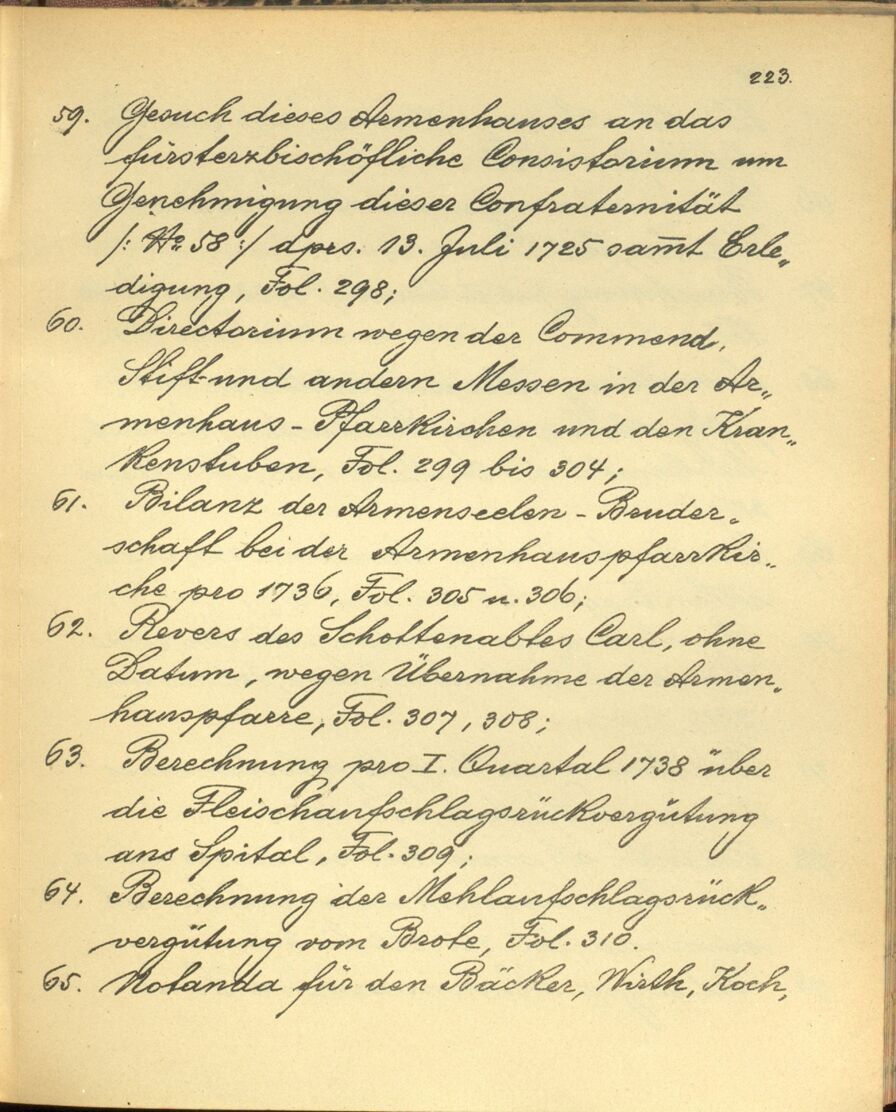 223.
59. Gesuch dieses Armenhauses an das
fürsterzbischöfliche Consistorium um
Genehmigung dieser Confraternität
/: No 58 :/ dprs. 13. Juli 1725 sam̅t Erle„
digung, Fol. 298;
60. Directorium wegen der Commend,
Stift- und andern Messen in der Ar„
menhaus-Pfarrkirchen und den Kran„
kenstuben, Fol. 299 bis 304;
61. Bilanz der Armenseelen-Bruder„
schaft bei der Armenhauspfarrkir„
che pro 1736, Fol. 305 u. 306;
62. Revers des Schottenabtes Carl, ohne
Datum, wegen Übernahme der Armen„
hauspfarre, Fol. 307, 308;
63. Berechnung pro I. Quartal 1738 über
die Fleischaufschlagsrückvergütung
ans Spital, Fol. 309;
64. Berechnung der Mehlaufschlagsrück„
vergütung vom Brote, Fol. 310.
65. Notanda für den Bäcker, Wirth, Koch,